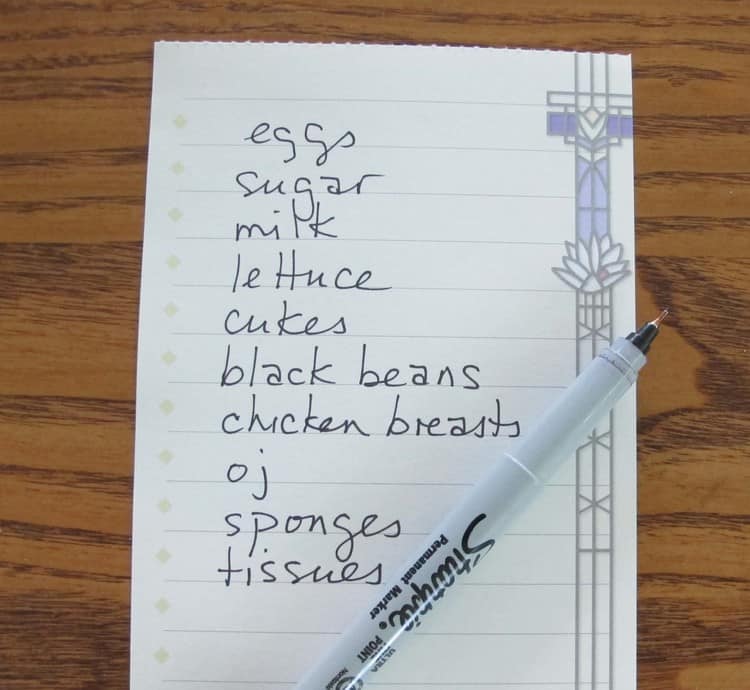 eggs
sugar
milk
lettuce
cukes
black beans
chicken breasts
oj
sponges
tissues
Sharpie.
Permanent Marker
ULTRA
POINT